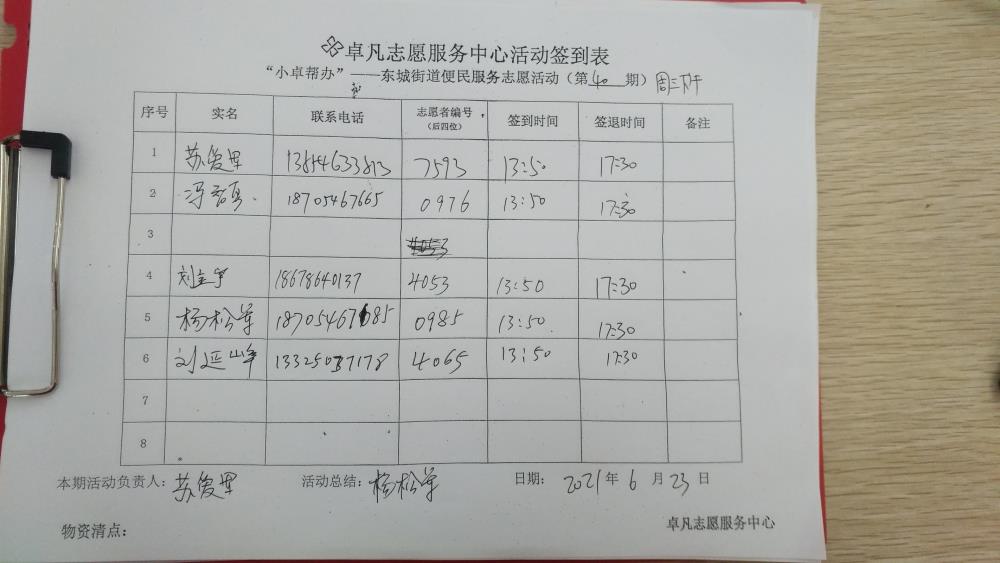 卓凡志愿服务中心活动签到表
“小卓帮办”——东城街道便民服务志愿活动(第 40 期)周三下午
序号 实名 联系电话 志愿者编号(后四位) 签到时间 签退时间 备注
1 苏俊里 13854633813 7593 13:50 17:30
2 冯 18705467665 0976 13:50 17:30
3
4 刘 18678640137 4053 13:50 17:30
5 杨松军 1870546785 0985 13:50 17:30
6 刘延峰 13325037178 4065 13:50 17:30
7
8
本期活动负责人: 苏俊里 活动总结: 杨松军 日期: 2021 年 6 月 23 日
物资清点:
卓凡志愿服务中心